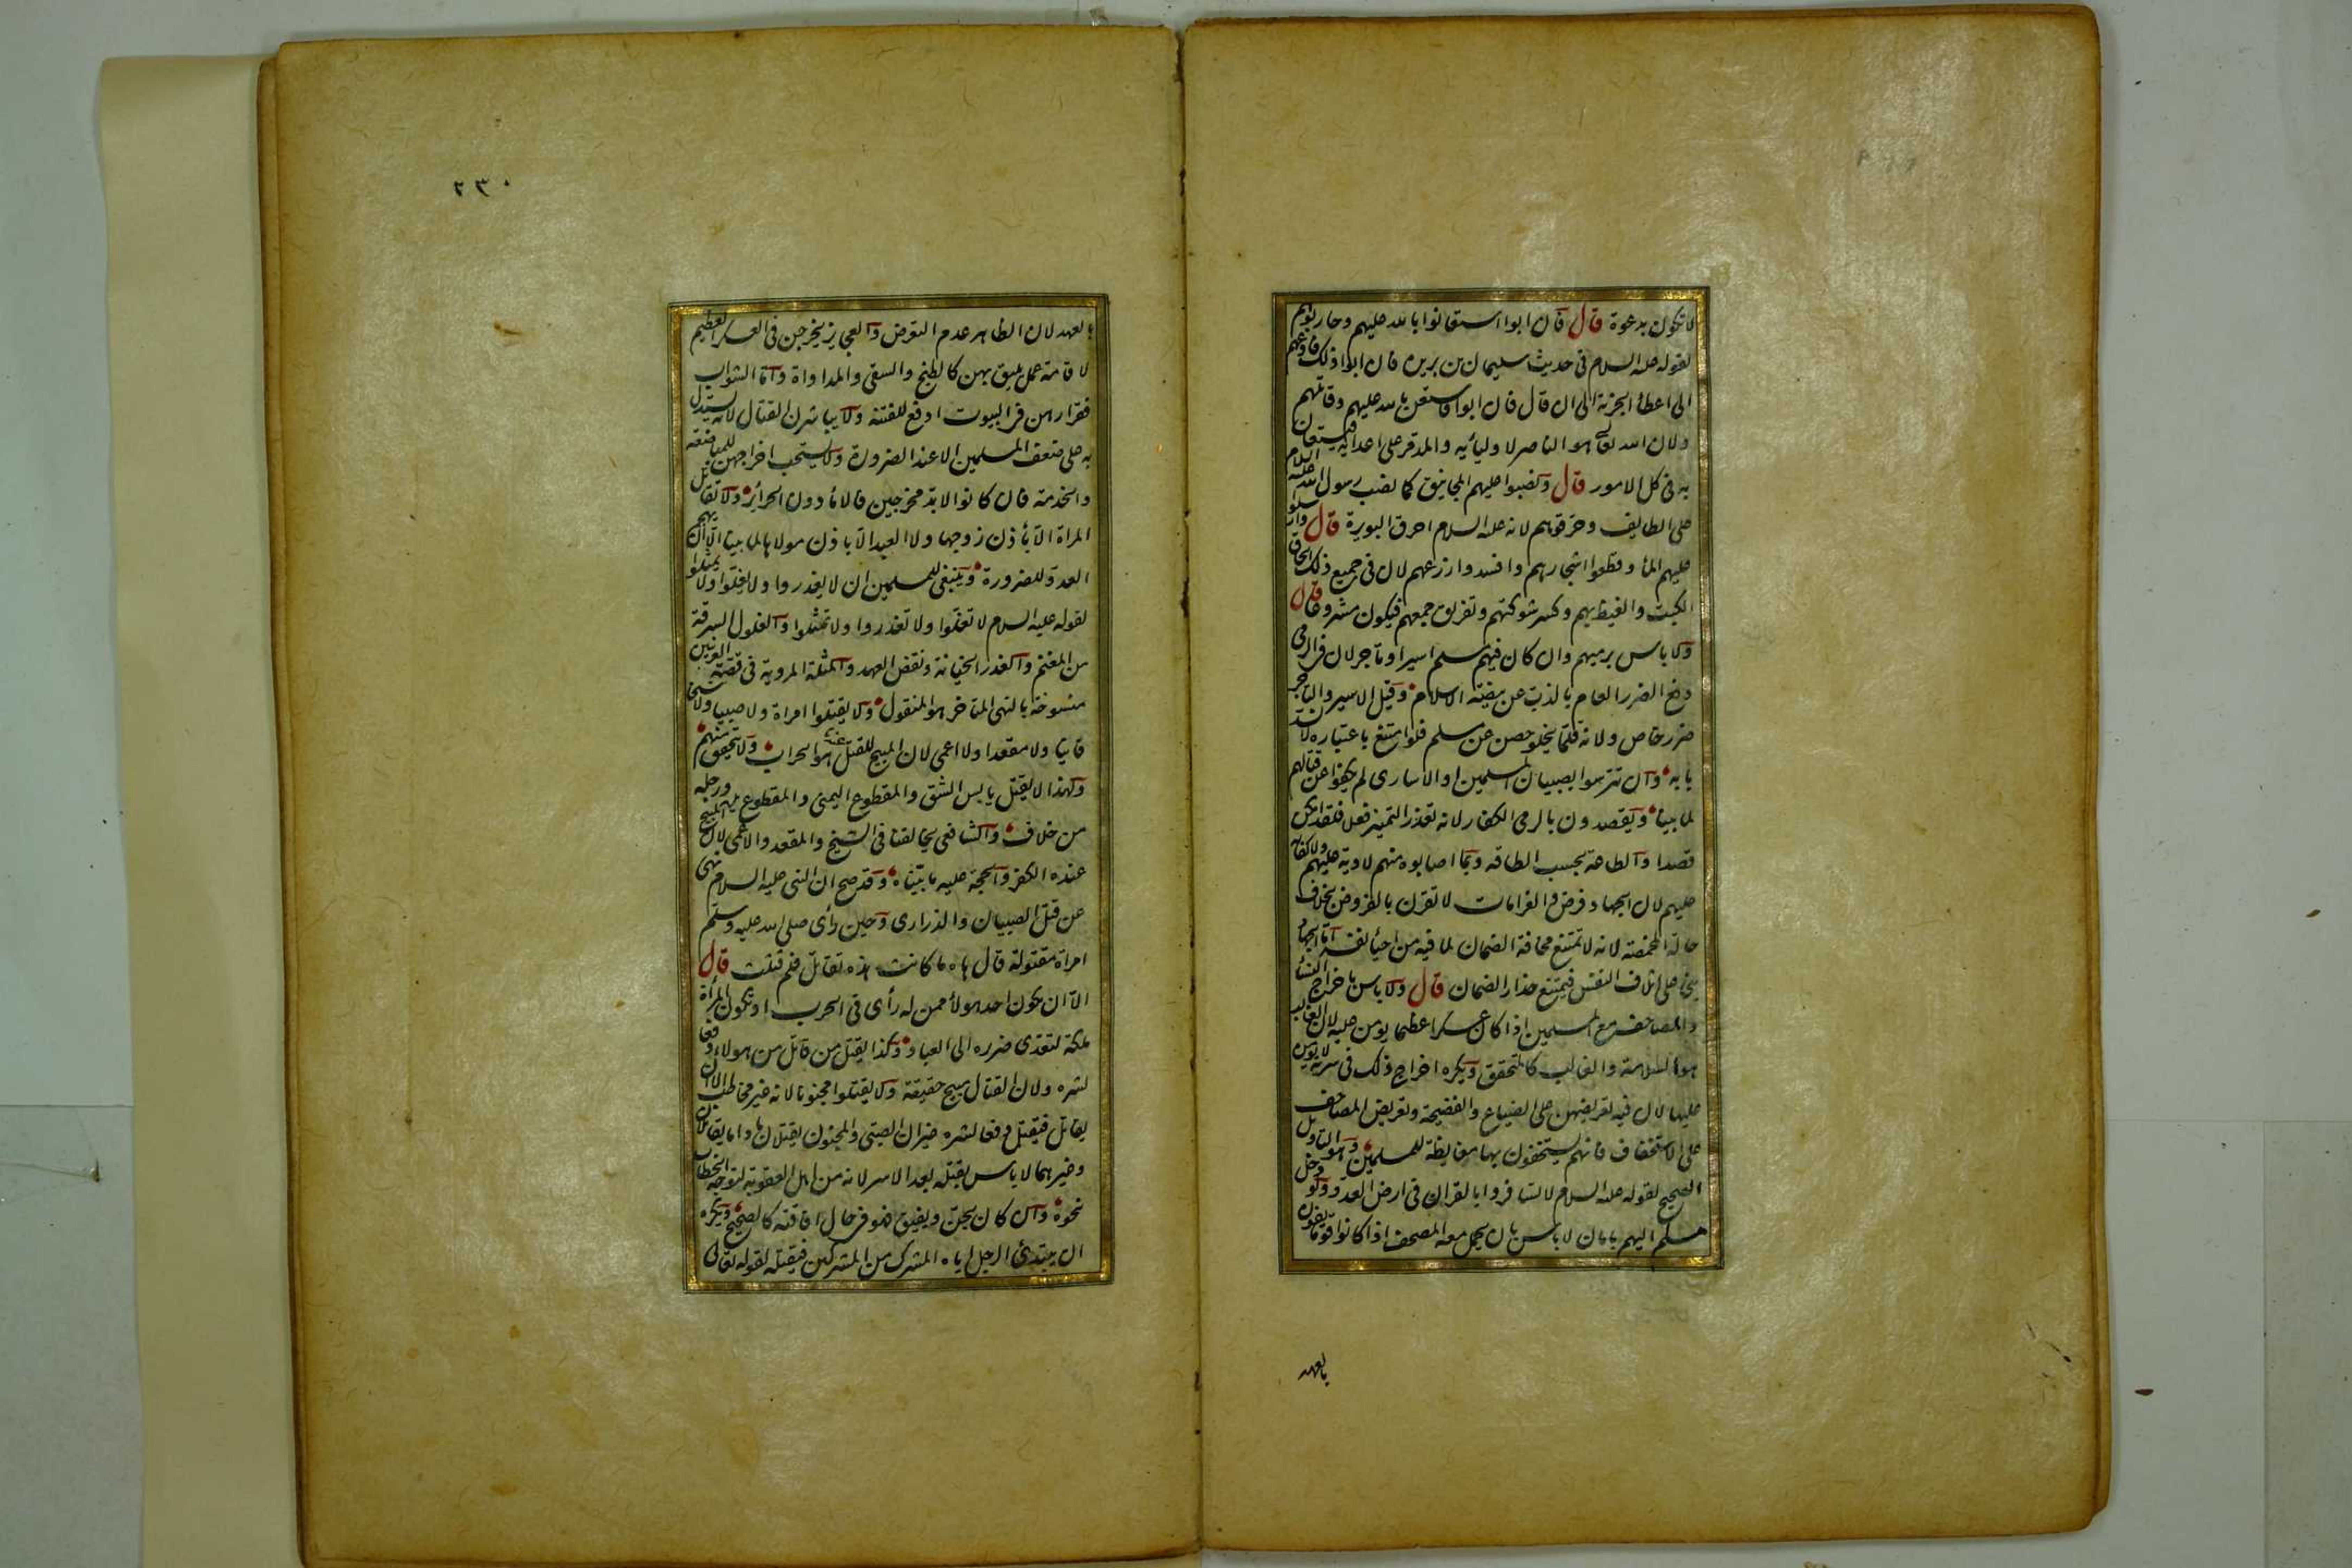 لا تكون بدعوة قال فان ابوا استعانوا بالله عليهم وحاربوهم
لقوله عليه السلام فى حديث سليمان بن بريدة فان ابوا ذلك فادعهم
الى اعطاء الجزية الى ان قال فان ابوا فاستعن بالله عليهم وقاتلهم
ولان الله تعالى هو الناصر لاوليائه والمدمر على اعدائه فيستعان
به فى كل الامور قال ونصبوا عليهم المجانيق كما نصب رسول الله عليه السلام
على الطايف وحرقوهم لانه عليه السلام احرق البويرة قال وارسلوا
عليهم الماء وقطعوا اشجارهم وافسدوا زرعهم لان فى جميع ذلك الحاق
الكبت والغيظ بهم وكسر شوكتهم وتفريق جمعهم فيكون مشروعا قال
ولا باس برميهم وان كان فيهم مسلم اسير او تاجر لان فى الرمى
دفع الضرر العام بالذب عن بيضة الاسلام وقتل الاسير والتاجر
ضرر خاص ولانه قلما يخلو حصن عن مسلم فلو امتنع باعتباره لانسد
بابه وان تترسوا بصبيان المسلمين او الاسارى لم يكفوا عن قتالهم
لما بينا ويقصدون بالرمى الكفار لانه تعذر التميز فعلا فلقد امكن
قصدا والطاعة بحسب الطاقة وما اصابوه منهم لا دية عليهم ولا كفارة
عليهم لان الجهاد فرض والغرامات لا تقرن بالفروض بخلاف
حالة المخمصة لانه لا تمتنع مخافة الضمان لما فيه من احياء نفسه اما الجهاد
بنى على اتلاف النفس فيمتنع حذار الضمان قال ولا باس باخراج النساء
والمصاحف مع المسلمين اذا كان عسكرا عظيما يومن عليه لان الغالب
هو السلامة والغالب كالمتحقق ويكره اخراج ذلك فى سرية لا يومن
عليها لان فيه تعريضهن على الضياع والفضيحة وتعريض المصاحف
على الاستخفاف فانهم يستخفون بها مغايظة للمسلمين وهو التاويل
الصحيح لقوله عليه السلام لا تسافروا بالقران فى ارض العدو ولو دخل
مسلم اليهم بامان لا باس بان يحمل معه المصحف اذا كانوا قوما يفون
بالعهد
٢٣٠
بالعهد لان الظاهر عدم التعرض والعجايز يخرجن فى العسكر العظيم
لاقامة عمل يليق بهن كالطبخ والسقى والمداواة واما الشواب
فقرارهن فى البيوت ادفع للفتنة ولا يباشرن القتال لانه يستدل
به على ضعف المسلمين الا عند الضرورة ولا يستحب اخراجهن للمباضعة
والخدمة فان كانوا لا بد مخرجين فالاماء دون الحرائر ولا تقاتل
المراة الا باذن زوجها ولا العبد الا باذن مولاه لما بينا الا ان يهجم
العدو للضرورة وينبغى للمسلمين ان لا يغدروا ولا يغلوا ولا يمثلوا
لقوله عليه السلام لا تغلوا ولا تغدروا ولا تمثلوا والغلول السرقة
من المغنم والغدر الخيانة ونقض العهد والمثلة المروية فى قصة العرنيين
منسوخة بالنهى المتاخر هو المنقول ولا يقتلوا امراة ولا صبيا ولا شيخا
فانيا ولا مقعدا ولا اعمى لان المبيح للقتل عندنا هو الحراب ولا يتحقق منهم
ولهذا لا يقتل يابس الشق والمقطوع اليمنى والمقطوع يده ورجله
من خلاف والشافعى يخالفنا فى الشيخ والمقعد والاعمى لان المبيح
عنده الكفر والحجة عليه ما بيناه وقد صح ان النبى عليه السلام نهى
عن قتل الصبيان والذرارى وحين رأى صلى الله عليه وسلم
امراة مقتولة قال هاه ما كانت هذه تقاتل فلم قتلت قال
الا ان يكون احد هولاء ممن له رأى فى الحرب او تكون المرأة
ملكة لتعدى ضرره الى العباد وكذا يقتل من قاتل من هولاء دفعا
لشره ولان القتال مبيح حقيقة ولا يقتلوا مجنونا لانه غير مخاطب الا ان
يقاتل فيقتل دفعا لشره غير ان الصبى والمجنون يقتلان ما داما يقاتلان
وغيرهما لا باس بقتله بعد الاسر لانه من اهل العقوبة لتوجه الخطاب
نحوه وان كان يجن ويفيق فهو فى حال افاقته كالصحيح ويكره
ان يبتدئ الرجل اباه المشرك من المشركين فيقتله لقوله تعالى